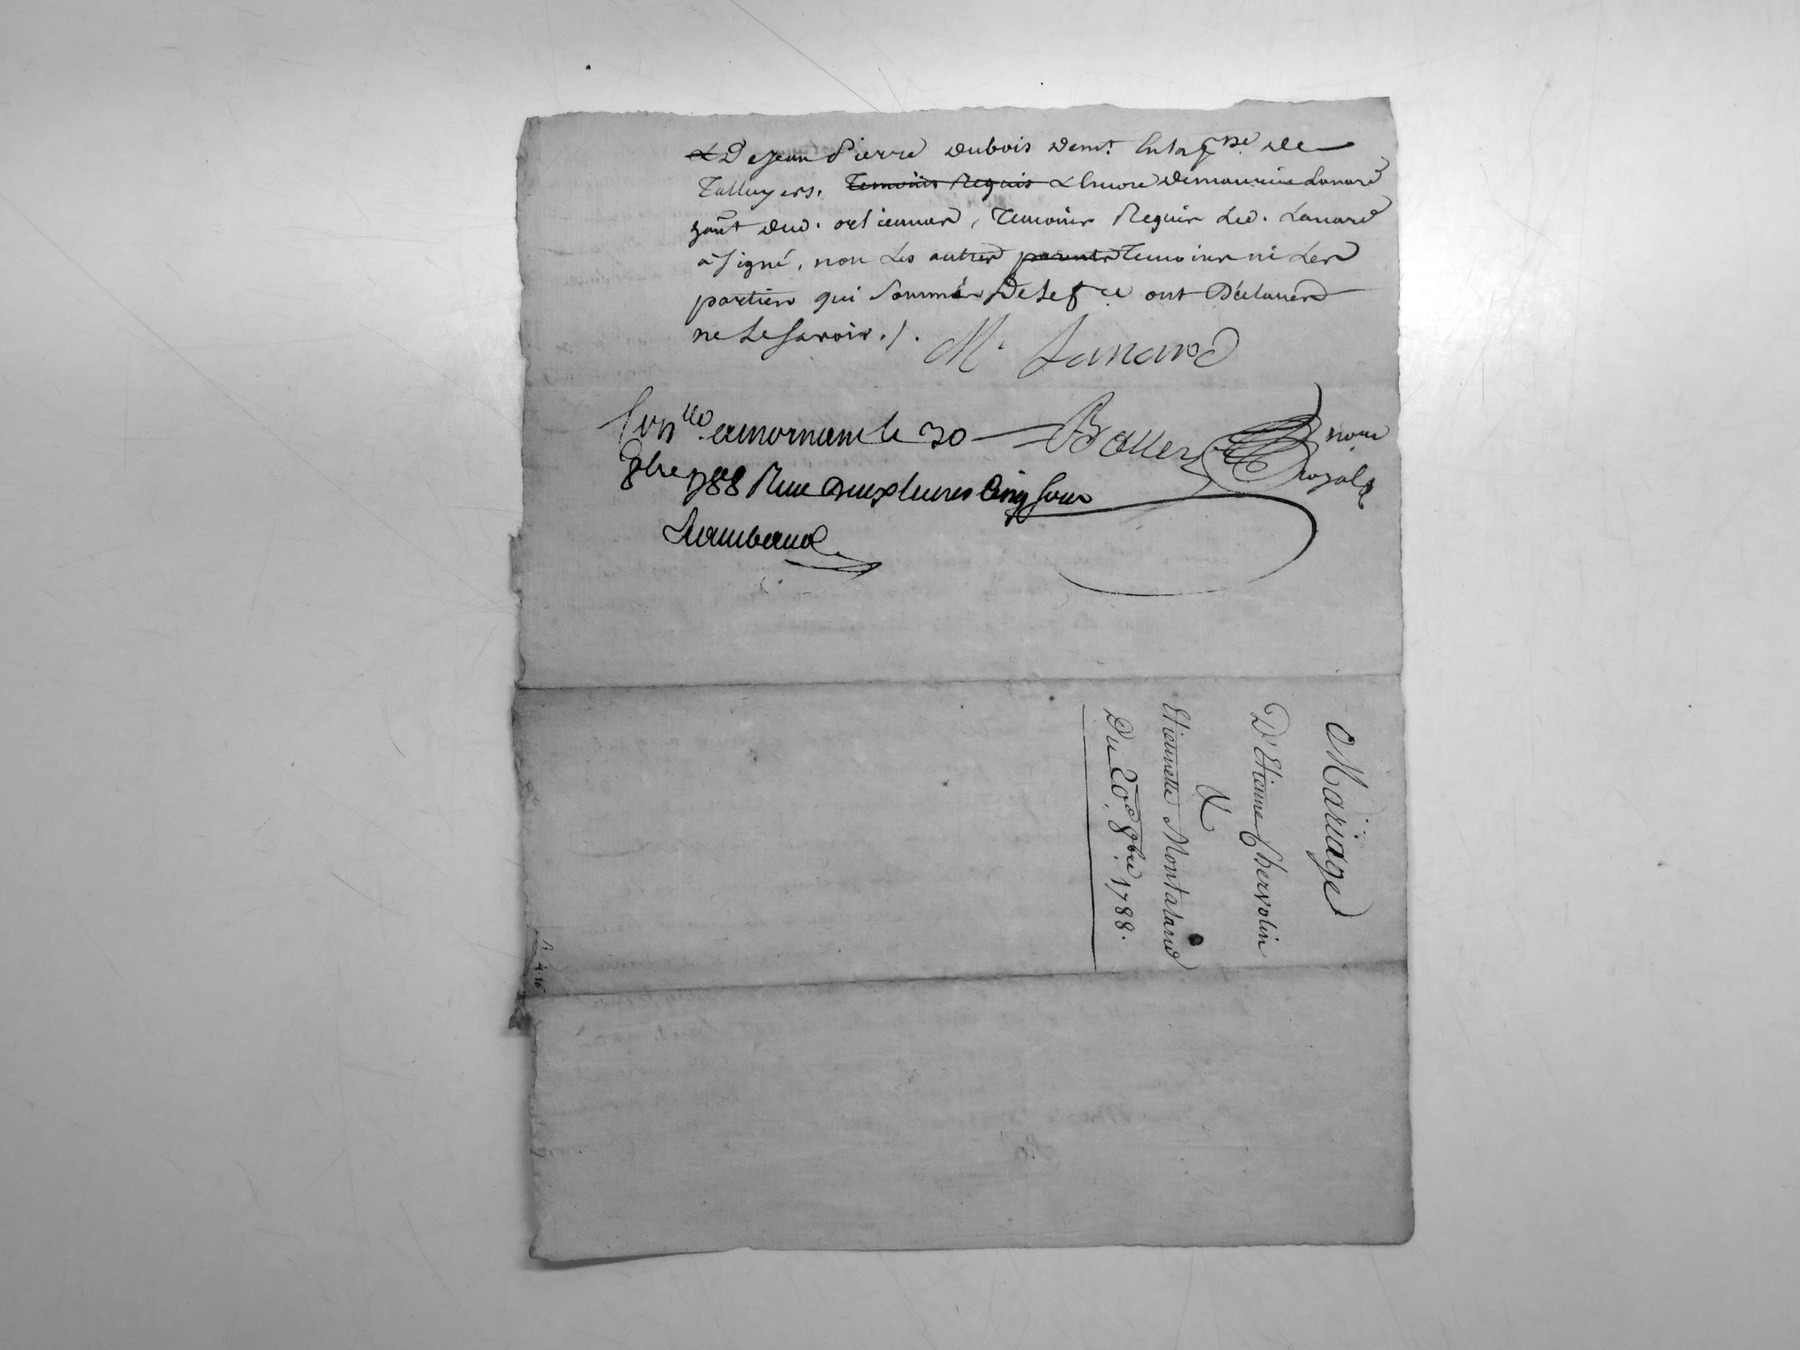 & De Jean Pierre Dubois demt. en la psse. de
Talluyers. Temoins Requis & encore de maurice Lanard
dud. Temoins Requis Led. Lanard
a signé, non Les autres parents Temoins ni Les
parties qui Sommés De Le fre. ont Déclarés
ne Le Savoir ./.
M. Lanard
Conllé. a mornant le 30
9bre 1788 Reçu deux livres Cinq Sous
nore
royal
Mariage
D'Etienne Chervolin
&
Etiennette Montaland
Du 20e. 9bre. 1788.